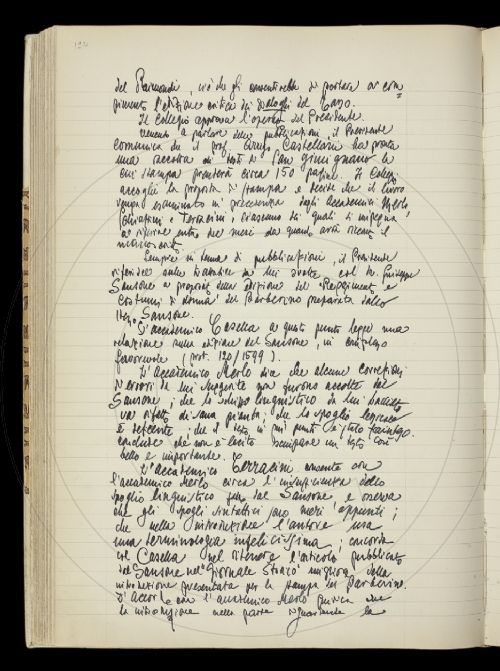 127
del Raimondi, ciò che gli consentirebbe di portare a com=
pimento l'edizione critica dei Dialoghi del Tasso.
Il Collegio approva l'operato del Presidente.
Venendo a parlare delle pubblicazioni, il Presidente
comunica che il prof. Arrigo Castellani ha pronta
una raccolta di testi di San Gimignano la
cui stampa prenderà circa 150 pagine. Il Collegio
accoglie la proposta di stampa e decide che il lavoro
venga esaminato in precedenza dagli Accademici Merlo,
Schiaffini e Terracini, ciascuno dei quali si impegna
a riferire entro due mesi da quando avrà ricevuto il
manoscritto.
Sempre in tema di pubblicazioni, il Presidente
riferisce sulle trattative da lui svolte col dr. Giuseppe
Sansone a proposito della edizione del "Reggimento e
costumi di donna" del Barberino preparata dallo
stesso Sansone.
L'accademico Casella a questo punto legge una
relazione sulla edizione del Sansone, in complesso
favorevole (prot. 120/1599).
L'Accademico Merlo dice che alcune correzioni
di errori da lui suggerite non furono accolte dal
Sansone; che lo spoglio linguistico da lui
va rifatto di sana pianta; che lo spoglio lessicale
è deficiente; che il testo in più punti è stato frainteso.
Conclude che non è lecito sciupare un testo così
bello e importante.
L'accademico Terracini consente con
l'accademico Merlo circa l'insufficienza dello
spoglio linguistico fatto dal Sansone, e osserva
che gli spogli sintattici sono meri appunti;
che nella introduzione l'autore usa
una terminologia infelicissima; concorda
col Casella nel ritenere l'articolo pubblicato
dal Sansone nel "Giornale Storico" migliore della
introduzione presentata per la stampa in Barberino.
D'accordo con l'accademico Merlo giudica che
la introduzione nella parte riguardante la